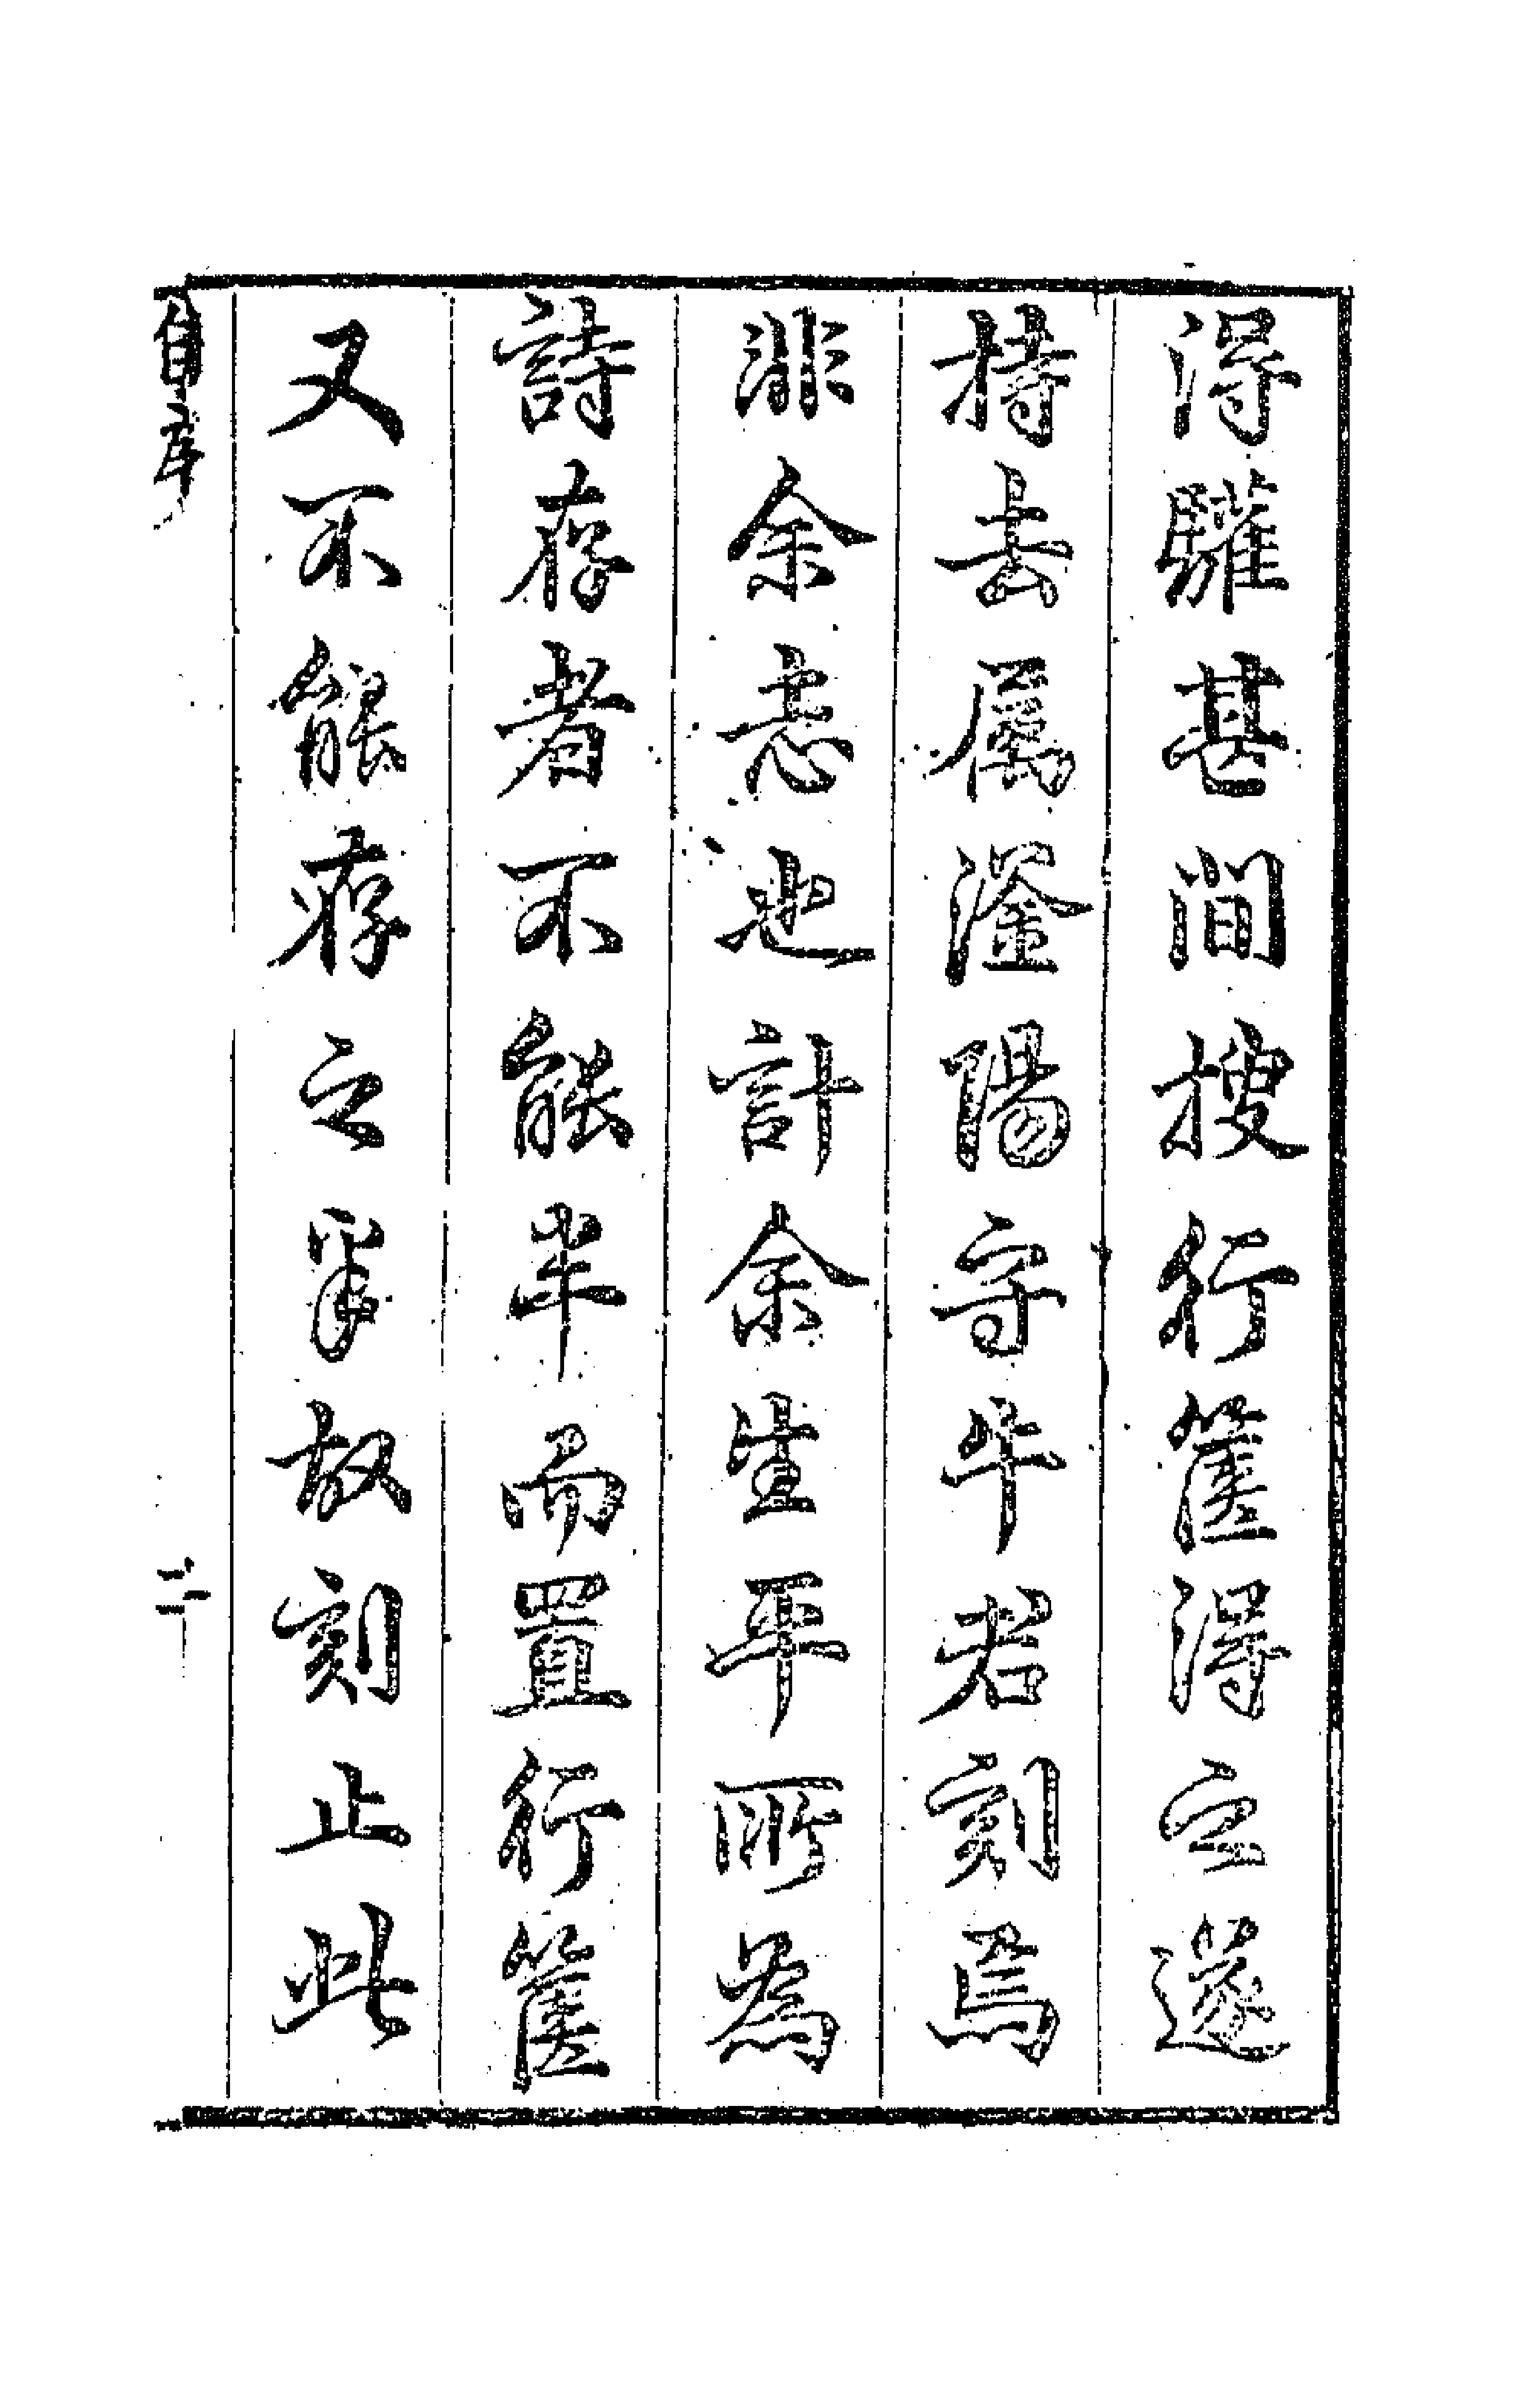 得驩甚間搜行篋得之遂
持去属滏陽守牛君刻焉
非余志也計余生平所為
詩存者不能半而置行篋
又不能存之半故刻止此
自序
二